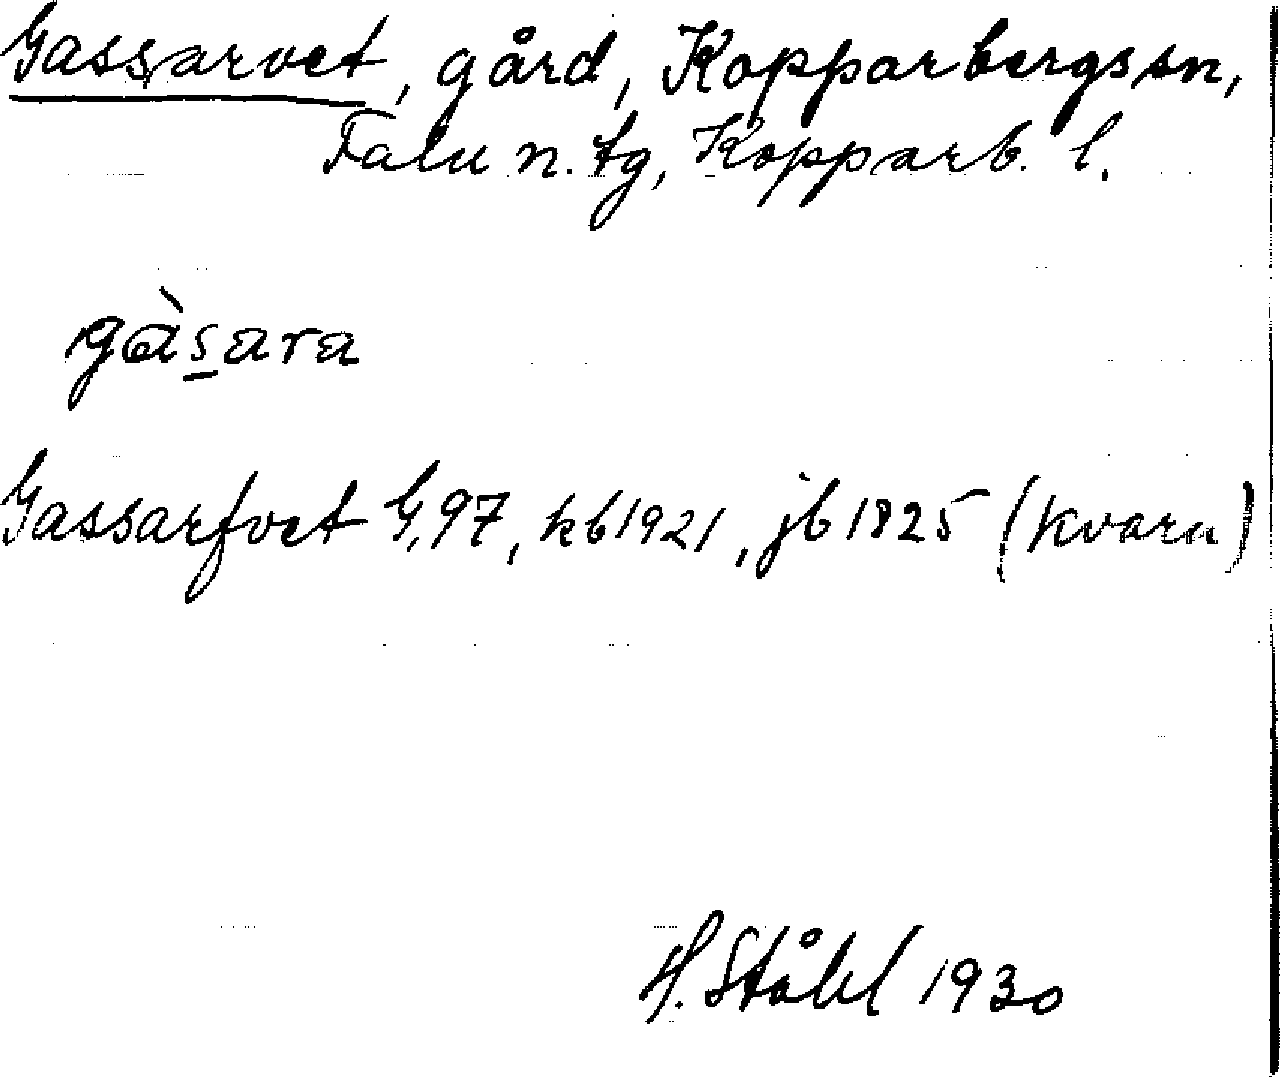 Gassarvet, gård, Kopparbergs sn,
Falu n. tg, Kopparb. l.
gàs̲ara
Gassarfvet G,97, kb1921, jb 1825 (kvarn)
H. Ståhl 1930